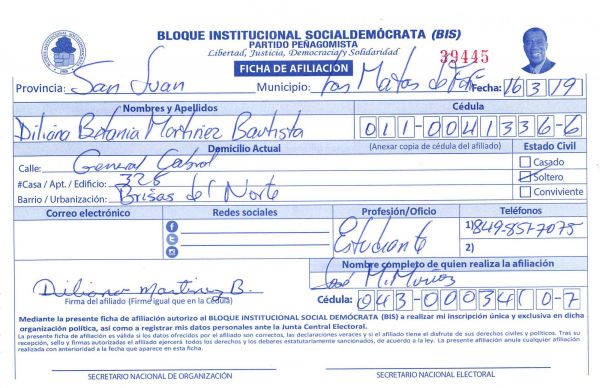 BLOQUE INSTITUCIONAL SOCIALDEMÓCRATA (BIS)
PARTIDO PEÑAGOMISTA
Libertad, Justicia, Democracia y Solidaridad
39445
FICHA DE AFILIACIÓN
Provincia: San Juan Municipio: Las Matas de Far Fecha: 16/3/19
Nombres y Apellidos Cédula
Diliana Betania Martinez Bautista 011-0041336-6
Domicilio Actual (Anexar copia de cédula del afiliado) Estado Civil
Calle: General Cabral Casado
#Casa / Apt. / Edificio: 328 Soltero
Barrio / Urbanización: Brisas del Norte Conviviente
Correo electrónico Redes sociales Profesión/Oficio Teléfonos
Estudiante 1) 849-851-7075
2)
Nombre completo de quien realiza la afiliación
Diliana Martinez B. José M. Muñoz
Firma del afiliado (Firme igual que en la Cédula) Cédula: 043-0003410-7
Mediante la presente ficha de afiliación autorizo al BLOQUE INSTITUCIONAL SOCIAL DEMÓCRATA (BIS) a realizar mi inscripción única y exclusiva en dicha
organización política, así como a registrar mis datos personales ante la Junta Central Electoral.
La presente ficha de afiliación es válida si los datos ofrecidos por el afiliado son correctos, las declaraciones veraces y si el afiliado tiene el disfrute de sus derechos civiles y políticos. Tras su
recepción, sello y firmas autorizadas el afiliado ejercerá todos los derechos y los deberes estatutariamente sancionados, de acuerdo a la ley. La presente afiliación anula cualquier afiliación
realizada con anterioridad a la fecha que aparece en esta ficha.
SECRETARIO NACIONAL DE ORGANIZACIÓN SECRETARIO NACIONAL ELECTORAL